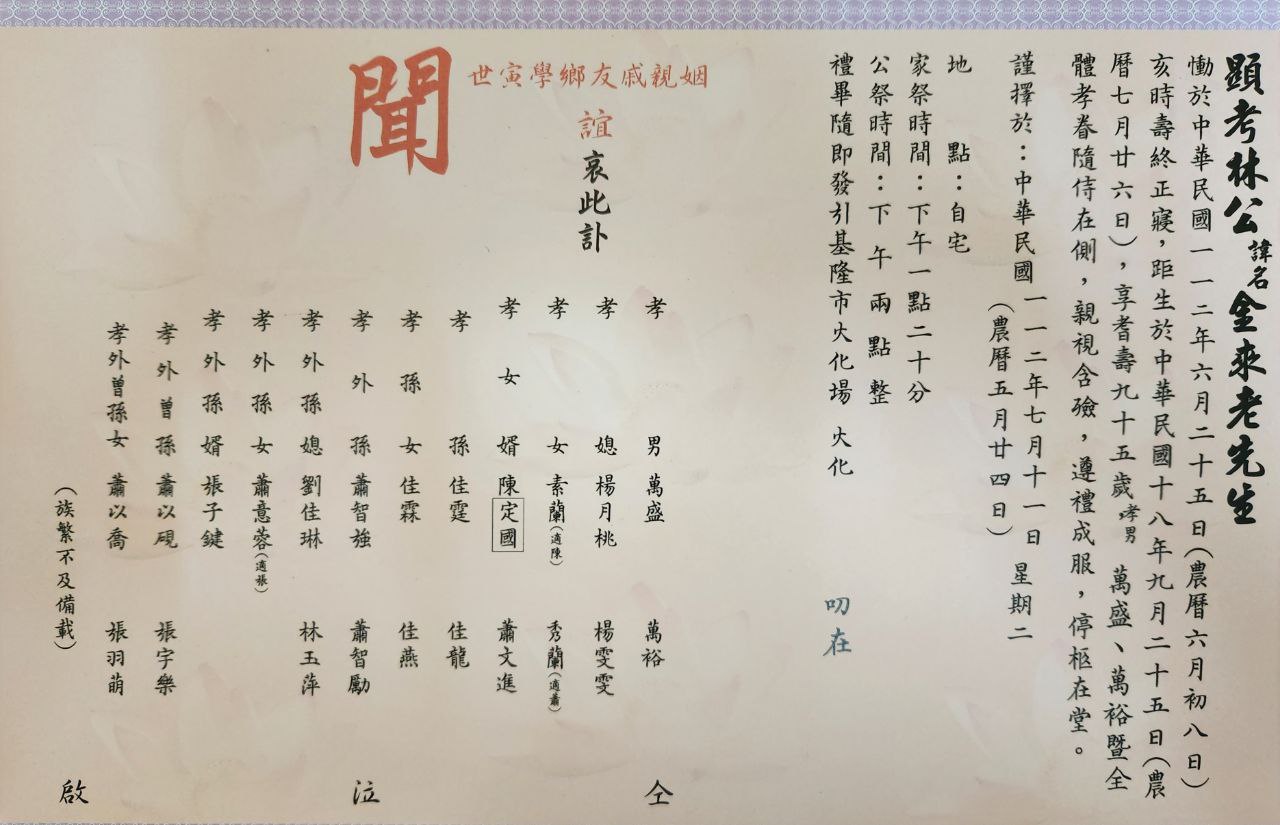 顯考林公諱名金來老先生
慟於中華民國一一二年六月二十五日(農曆六月初八日)
亥時壽終正寢，距生於中華民國十八年九月二十五日(農
曆七月廿六日)，享耆壽九十五歲，孝男 萬盛、萬裕暨全
體孝眷隨侍在側，親視含殮，遵禮成服，停柩在堂。
謹擇於：中華民國一一二年七月十一日 星期二
(農曆五月廿四日)
地 點：自宅
家祭時間：下午一點二十分
公祭時間：下午兩點整
禮畢隨即發引基隆市火化場 火化
叨在
姻親戚友鄉學寅世
誼哀此訃
聞
孝男 萬盛 萬裕
孝媳 楊月桃 楊雯雯
孝女 素蘭(適陳) 秀蘭(適蕭)
孝女婿 陳定國 蕭文進
孝孫 佳霆 佳龍
孝孫女 佳霖 佳燕
孝外孫 蕭智強 蕭智勵
孝外孫媳 劉佳琳 林玉萍
孝外孫女 蕭意蓉(適張)
孝外孫婿 張子鍵
孝外曾孫 蕭以硯 張宇樂
孝外曾孫女 蕭以喬 張羽萌
(族繁不及備載)
仝
泣
啟